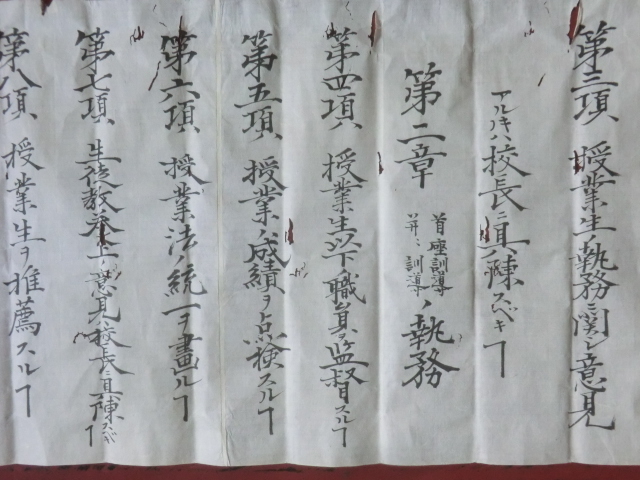 第三項 授業生執務ニ関シ意見
アルキハ校長ニ具陳スベキヿ
第二章 首座訓導并ニ訓導ノ執務
第四項ハ 授業生以下ノ職員ヲ監督スルヿ
第五項ハ 授業ノ成績ヲ点検スルヿ
第六項ハ 授業法ノ統一ヲ畫ルヿ
第七項 生徒教養上ノ意見校長ニ具陳スベキヿ
第八項 授業生ヲ推薦スルヿ